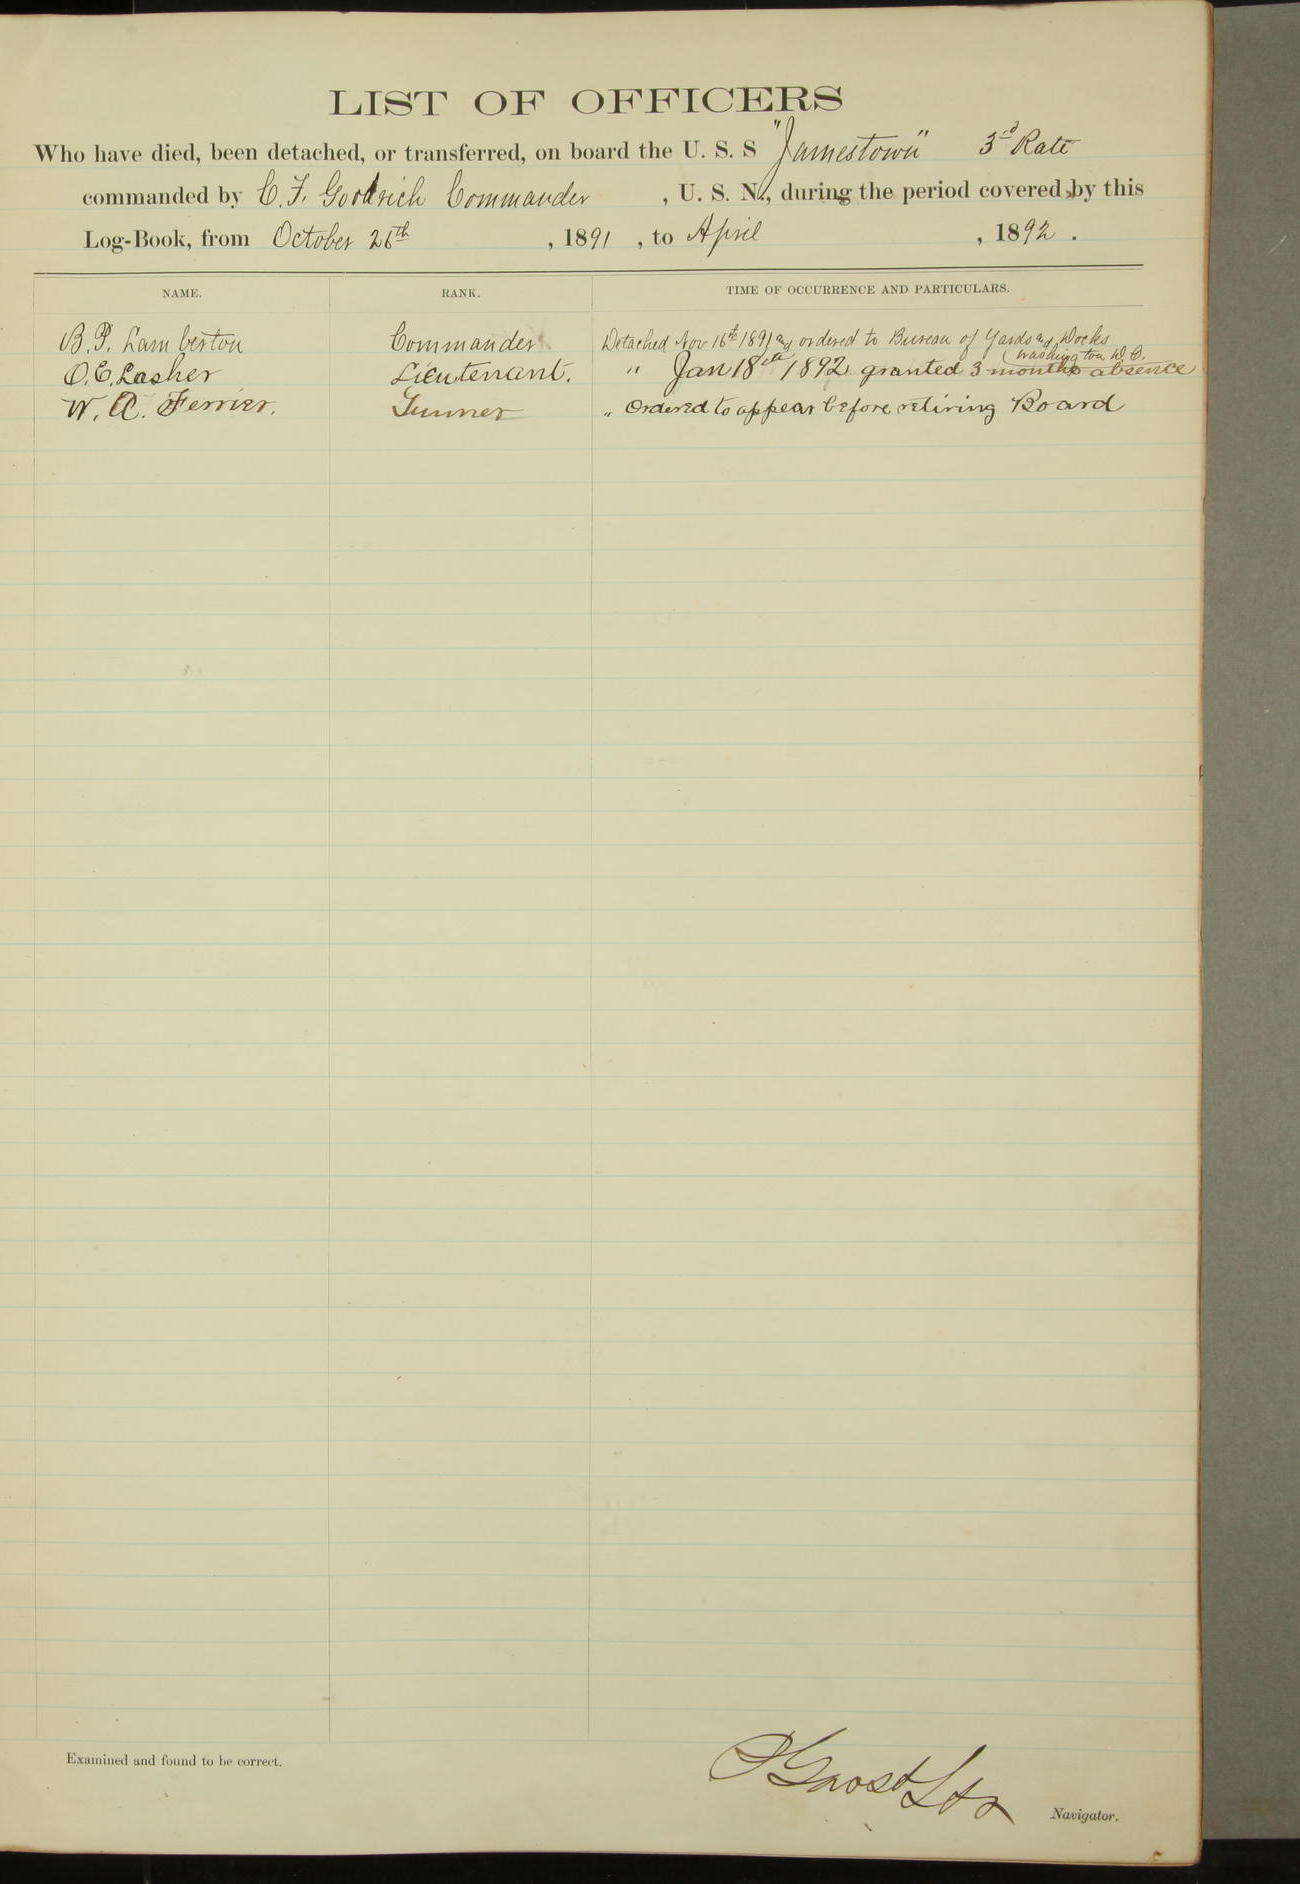 LIST OF OFFICERS
Who have died, been detached, or transferred, on board the U. S. S "Jamestown" 3rd Rate
commanded by C. F. Goodrich Commander, U. S. N., during the period covered by this
Log-Book, from October 26th, 1891, to April, 1892.
NAME. RANK. TIME OF OCCURRENCE AND PARTICULARS.
B. P. Lamberton Commander Detached Nov 16th 1891 and ordered to Bureau of Yards and Docks
(Washington D.C.
O. E. Lasher Lieutenant. " Jan 18th 1892 granted 3 months absence
W. A. Ferrier. Gunner " Ordered to appear before retiring Board
Examined and found to be correct.
Navigator.